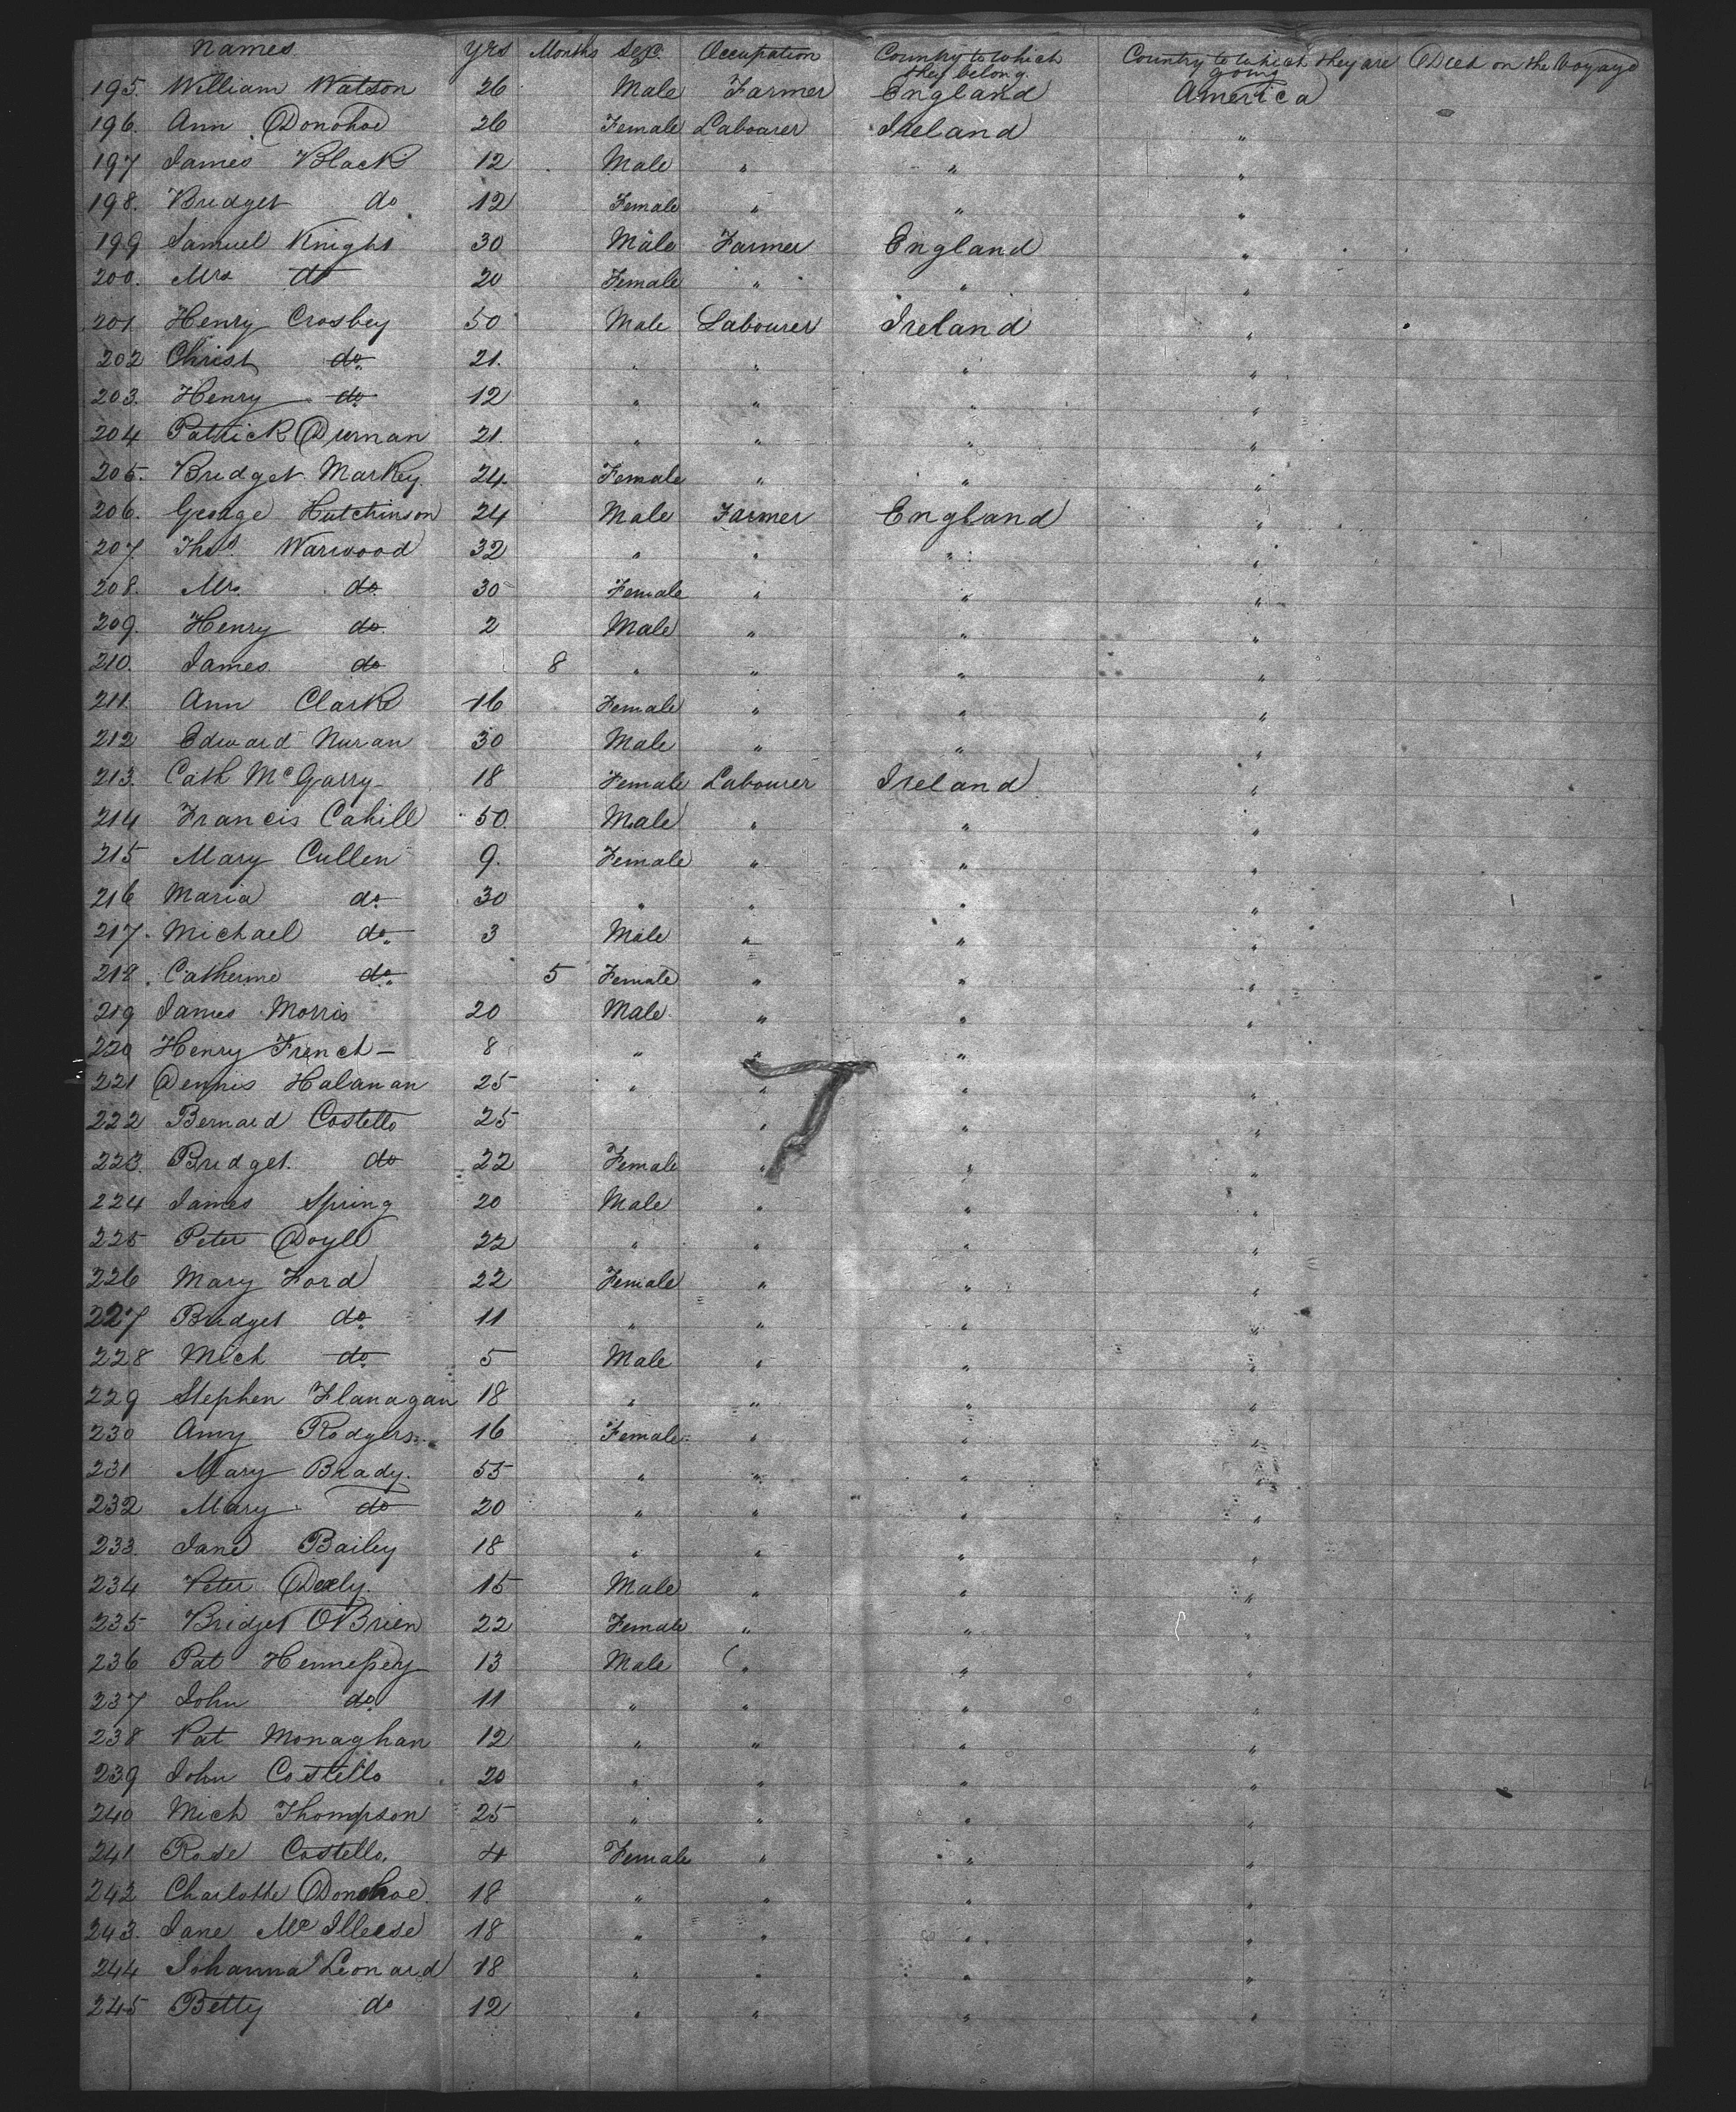 Names Yrs Months Sex Occupation Country to which they belong Country to which they are going Died on the Voyage
195. William Watson 26 Male Farmer England America
196. Ann Donohoe 26 Female Labourer Ireland "
197 James Black 12 Male " " "
198. Bridget do 12 Female " " "
199 Samuel Knight 30 Male Farmer England "
200. Mrs do 20 Female " " "
201 Henry Crosbey 50 Male Labourer Ireland "
202 Christ do. 21. " " " "
203. Henry do 12 " " " "
204 Patrick Durnan 21. " " " "
205. Bridget Markey. 24 Female " " "
206. George Hutchinson 24 Male Farmer England "
207. Thos. Warwood 32 " " " "
208. Mrs. do 30 Female " " "
209. Henry do. 2 Male " " "
210. James. do 8 " " " "
211. Ann Clark 16 Female " " "
212 Edward Nuran 30 Male " " "
213. Cath McGarry 18 Female Labourer Ireland "
214 Francis Cahill 50. Male " " "
215 Mary Cullen 9. Female " " "
216 Maria do 30 " " " "
217. Michael do. 3 Male " " "
218. Catherine do. 5 Female " " "
219 James Morris 20 Male " " "
220 Henry French - 8 " " "
221 Dennis Halanan 25 " " " "
222 Bernard Costello 25 " " "
223. Bridget. do 22 Female " " "
224 James Spring 20 Male " " "
225 Peter Doyle 22 " " " "
226 Mary Ford 22 Female " " "
227 Bridget do. 11 " " " "
228 Mich do. 5 Male " " "
229 Stephen Flanagan 18 " " " "
230 Amy Rodgers. 16 Female " " "
231 Mary Brady. 55 " " " "
232 Mary do 20 " " " "
233. Jane Bailey 18 " " " "
234 Peter 15 Male " " "
235 Bridget OBrien 22 Female " " "
236 Pat Hennessey 13 Male " " "
237 John do. 11 " " " "
238 Pat Monaghan 12 " " " "
239 John Costello 20 " " " "
240 Mich Thompson 25 " " " "
241 Rose Costello. 4 Female " " "
242 Charlotte Donohoe. 18 " " " "
243. Jane Mc 18 " " " "
244 Johanna Leonard 18 " " " "
245 Betty do 12 " " " "